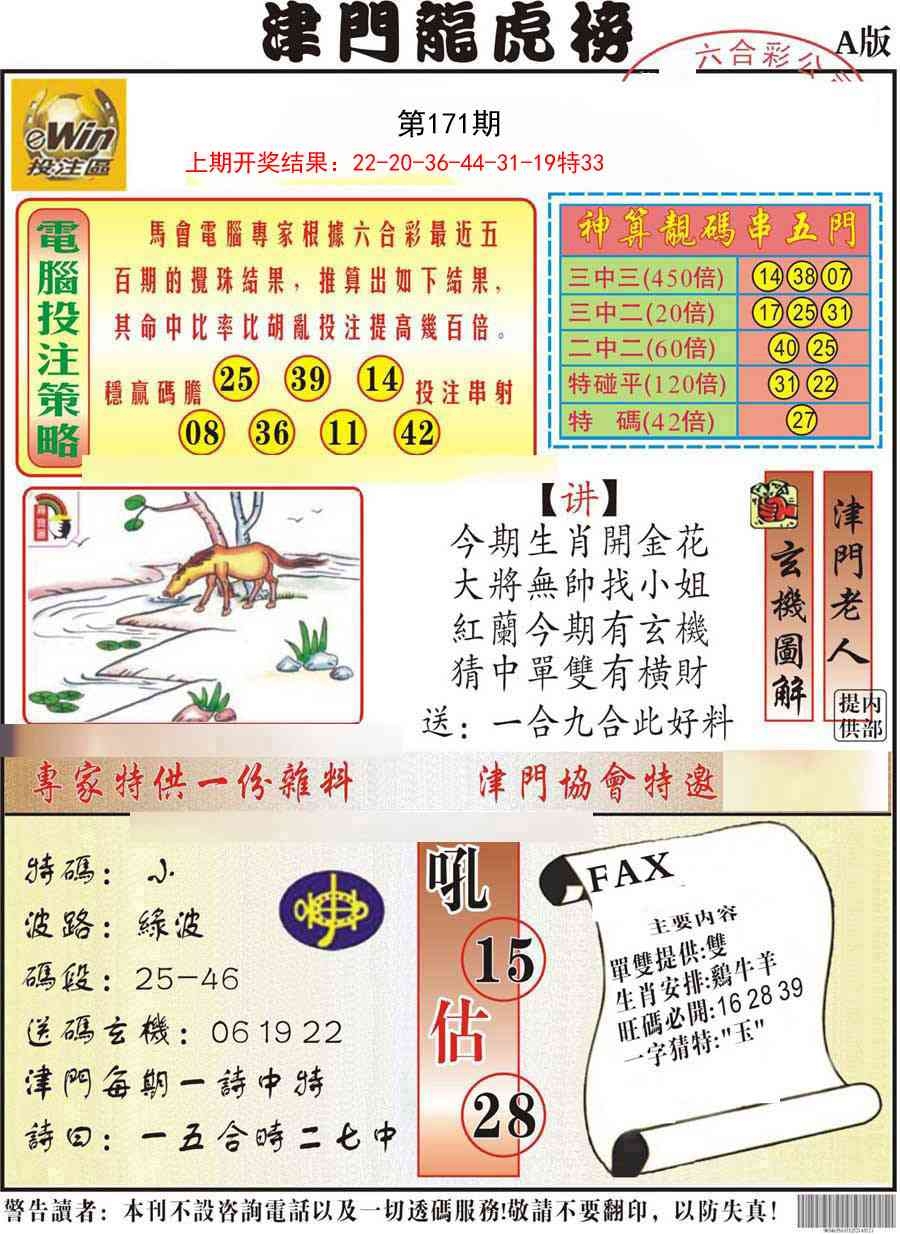 津門龍虎榜
A版
六合彩公司
eWin
投注區
第171期
上期开奖结果：22-20-36-44-31-19特33
電腦投注策略
馬會電腦專家根據六合彩最近五
百期的攪珠結果，推算出如下結果，
其命中比率比胡亂投注提高幾百倍。
穩贏碼膽 25 39 14 投注串射
08 36 11 42
神算靚碼串五門
三中三(450倍) 14 38 07
三中二(20倍) 17 25 31
二中二(60倍) 40 25
特碰平(120倍) 31 22
特 碼(42倍) 27
【讲】
今期生肖開金花
大將無帥找小姐
紅蘭今期有玄機
猜中單雙有橫財
送：一合九合此好料
玄機圖解
津門老人
提供
内部
專家特供一份雜料
津門協會特邀
特碼：小
波路：綠波
碼段：25-46
送碼玄機：06 19 22
津門每期一詩中特
詩曰：一五合時二七中
吼
15
估
28
FAX
主要内容
單雙提供:雙
生肖安排:鷄牛羊
旺碼必開:16 28 39
一字猜特:"玉"
警告讀者：本刊不設咨詢電話以及一切透碼服務!敬請不要翻印，以防失真！